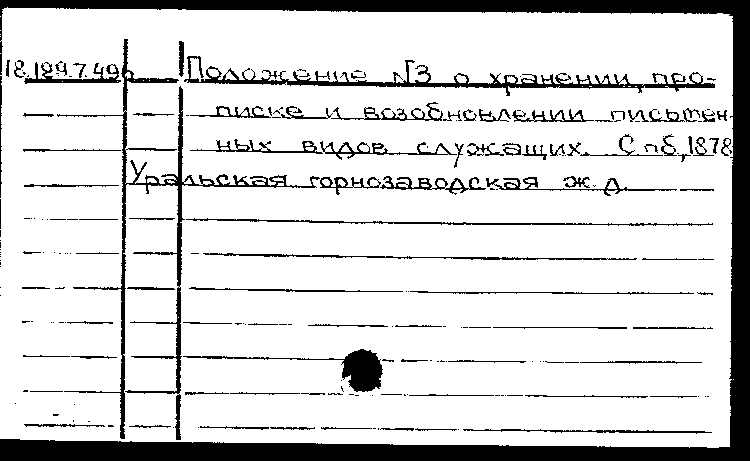 18.189.7.49б Положение №3 о хранении, про-
писке и возобновлении письмен-
ных видов служащих. Спб, 1878
Уральская горнозаводская ж. д.